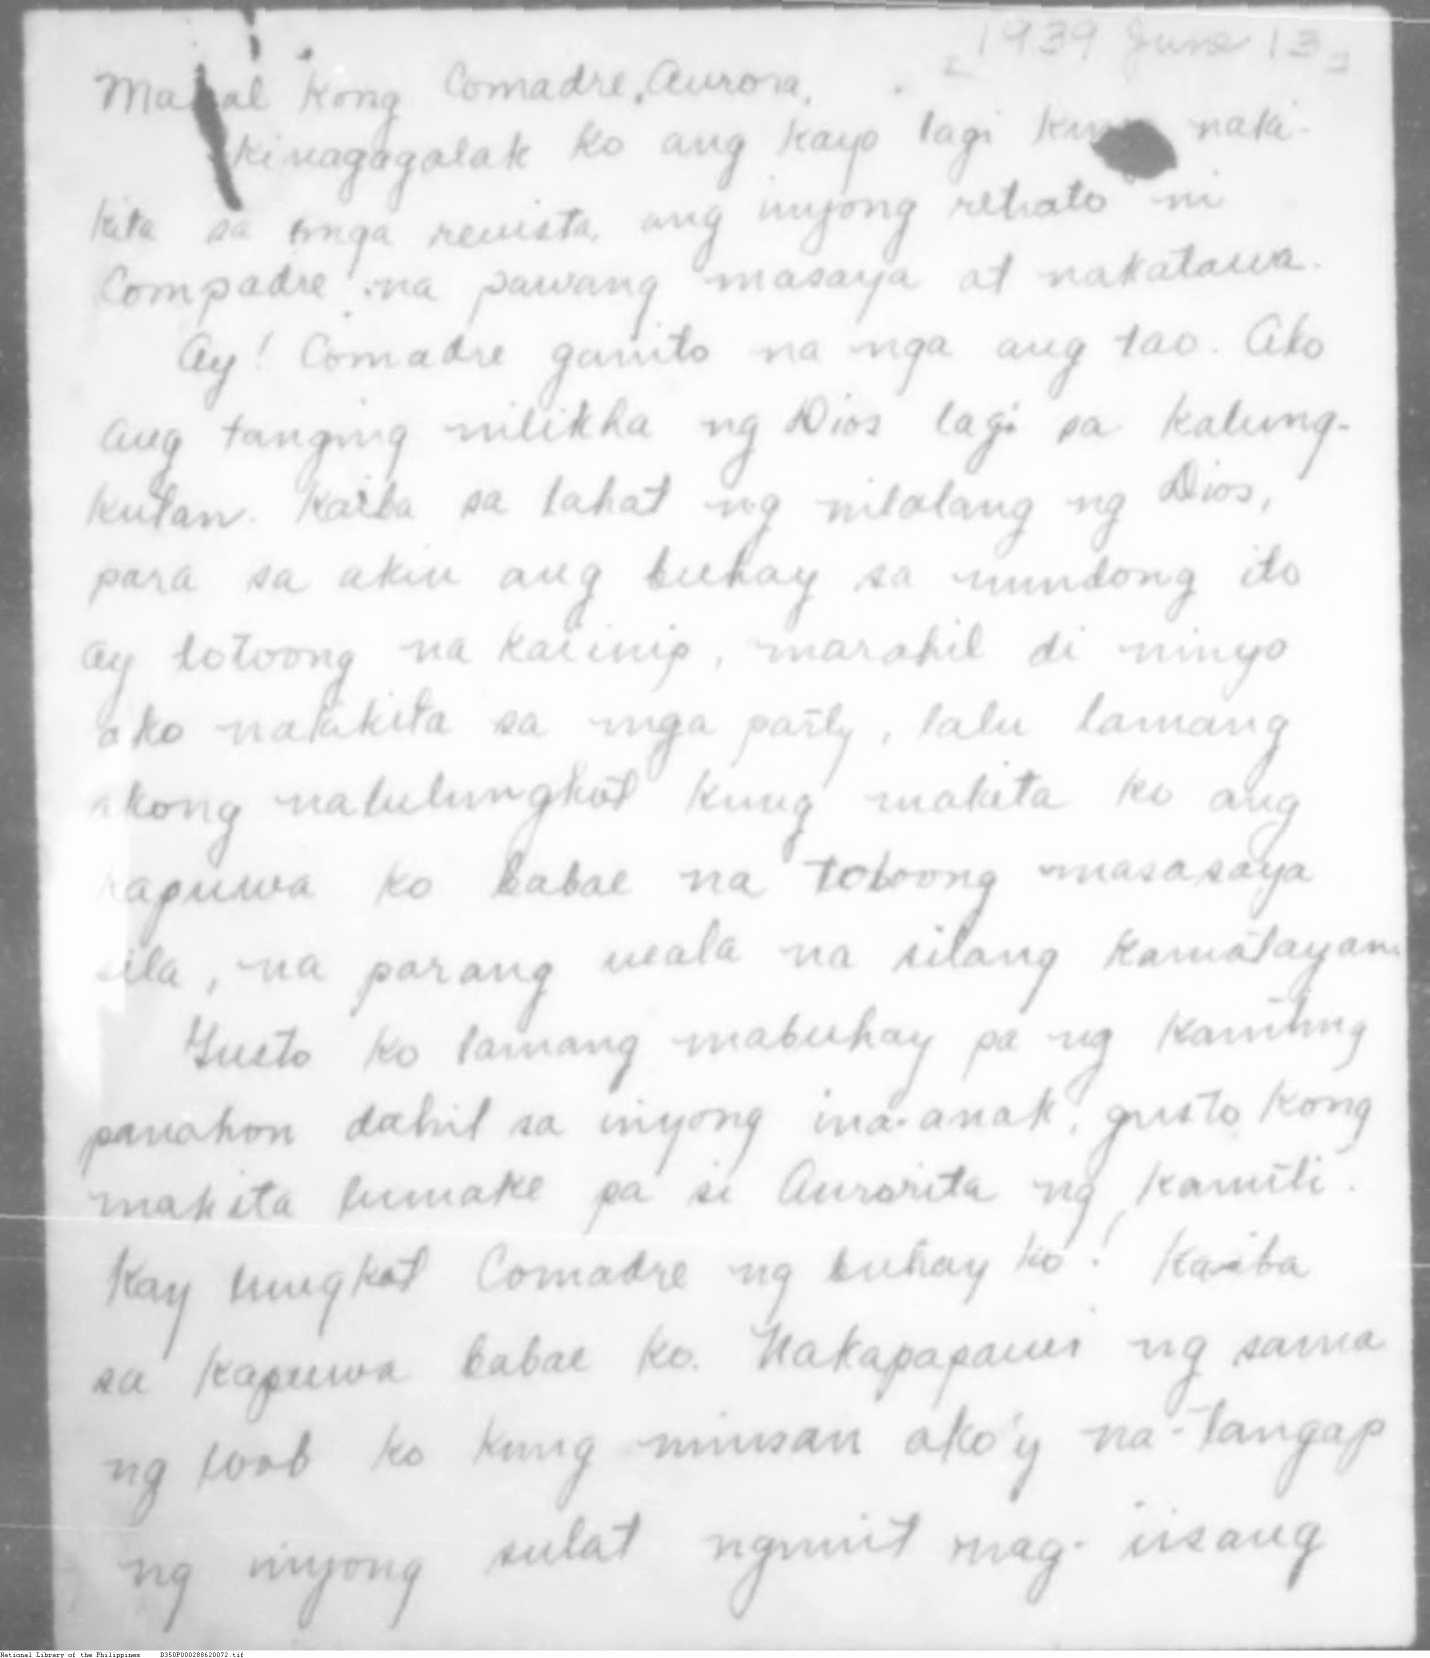 1939 June 13
Mahal Kong Comadre, Aurora,
Kinagagalak ko ang kayo lagi kung naki-
kita sa mga revista, ang inyong retrato ni
Compadre, na pawang masaya at nakatawa.
Ay! Comadre ganito na nga ang tao. Ako
ang tanging nilikha ng Dios lagi sa kalung-
kutan. Kaiba sa lahat ng nilalang ng Dios,
para sa akin ang buhay sa mundong ito
ay totoong na kaiinip, marahil di ninyo
ako nakikita sa mga party, lalu lamang
akong nalulungkot kung makita ko ang
kapuwa ko babae na totoong masasaya
sila, na parang wala na silang kamatayan.
Gusto ko lamang mabuhay pa ng kamting
panahon dahil sa inyong ina-anak, gusto kong
makita lumake pa si Aurorita ng kamti.
Kay lungkot Comadre ng buhay ko! Kaiba
sa kapuwa babae ko. Nakapapawi ng sama
ng loob ko kung minsan ako'y na-tangap
ng inyong sulat ngunit mag-iisang
National Library of the Philippines D350P000288620072.tif